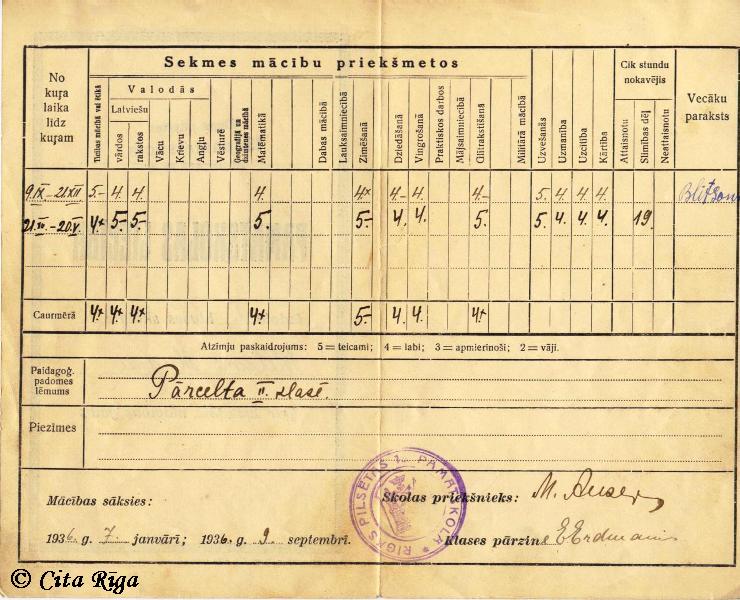 Sekmes mācību priekšmetos
No kuŗa laika līdz kuŗam
Ticības mācībā vai ētikā
Valodās
Latviešu
vārdos
rakstos
Vācu
Krievu
Angļu
Vēsturē
Ģeografijā un dzimtenes mācībā
Matēmatikā
Dabas mācībā
Lauksaimniecībā
Zīmēšanā
Dziedāšanā
Vingrošanā
Praktiskos darbos
Mājsaimniecībā
Glītrakstīšanā
Militārā mācībā
Uzvešanās
Uzmanība
Uzcītība
Kārtība
Cik stundu nokavējis
Attaisnotu
Slimības dēļ
Neattaisnotu
Vecāku paraksts
9.IX.-21.XII 5.- 4. 4. 4. 4x 4.- 4. 4.- 5. 4. 4. 4.
21.XII.-20.V. 4x 5.- 5.- 5. 5.- 4. 4. 5. 5. 4. 4. 4. 19.
Caurmērā 4x 4x 4x 4x 5.- 4. 4. 4x
Atzīmju paskaidrojums: 5 = teicami; 4 = labi; 3 = apmierinoši; 2 = vāji.
Paidagoģ. padomes lēmums
Pārcelta II. klasē.
Piezīmes
Mācības sāksies:
1936. g. 7. janvārī; 1936. g. 9. septembrī.
Skolas priekšnieks: M.
Klases pārzine E Erdmanis
RĪGAS PILSĒTAS PAMATSKOLA
© Cita Rīga